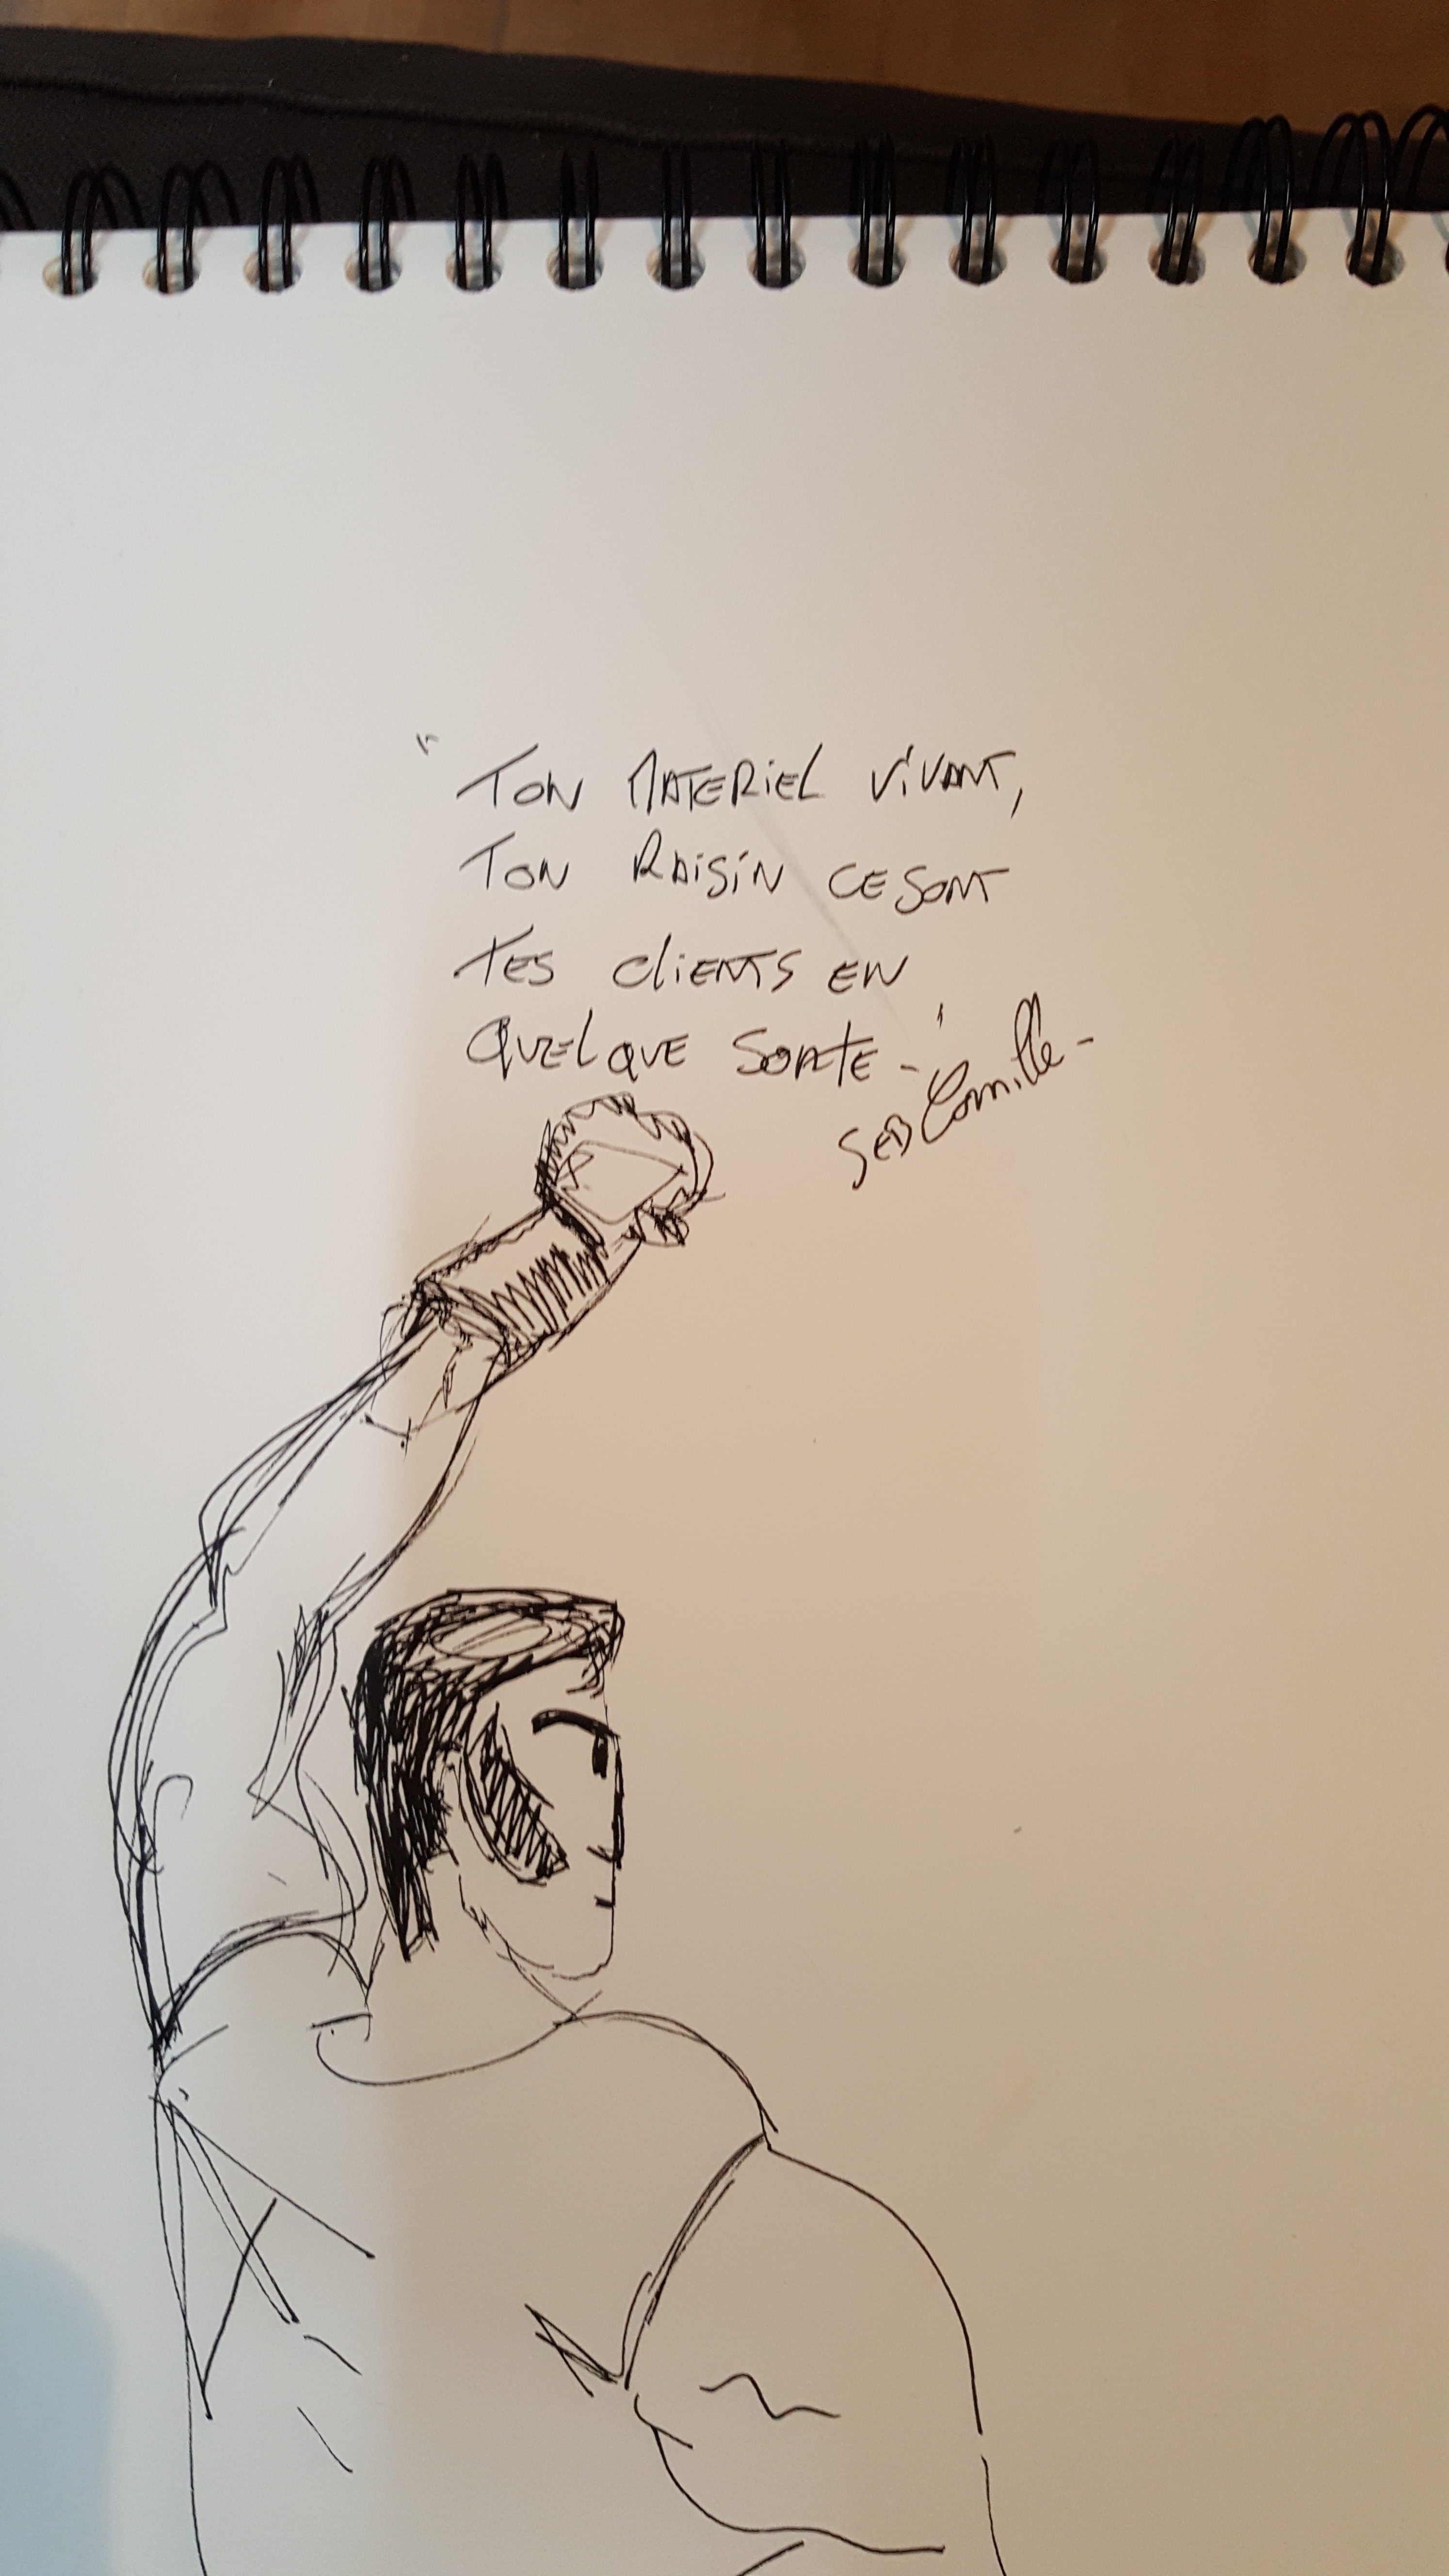 " TON MATERIEL ViVANT,
TON RAiSiN CE SONT
TES CliENTS EN
QUELQUE SORTE - "
SEB Camille -